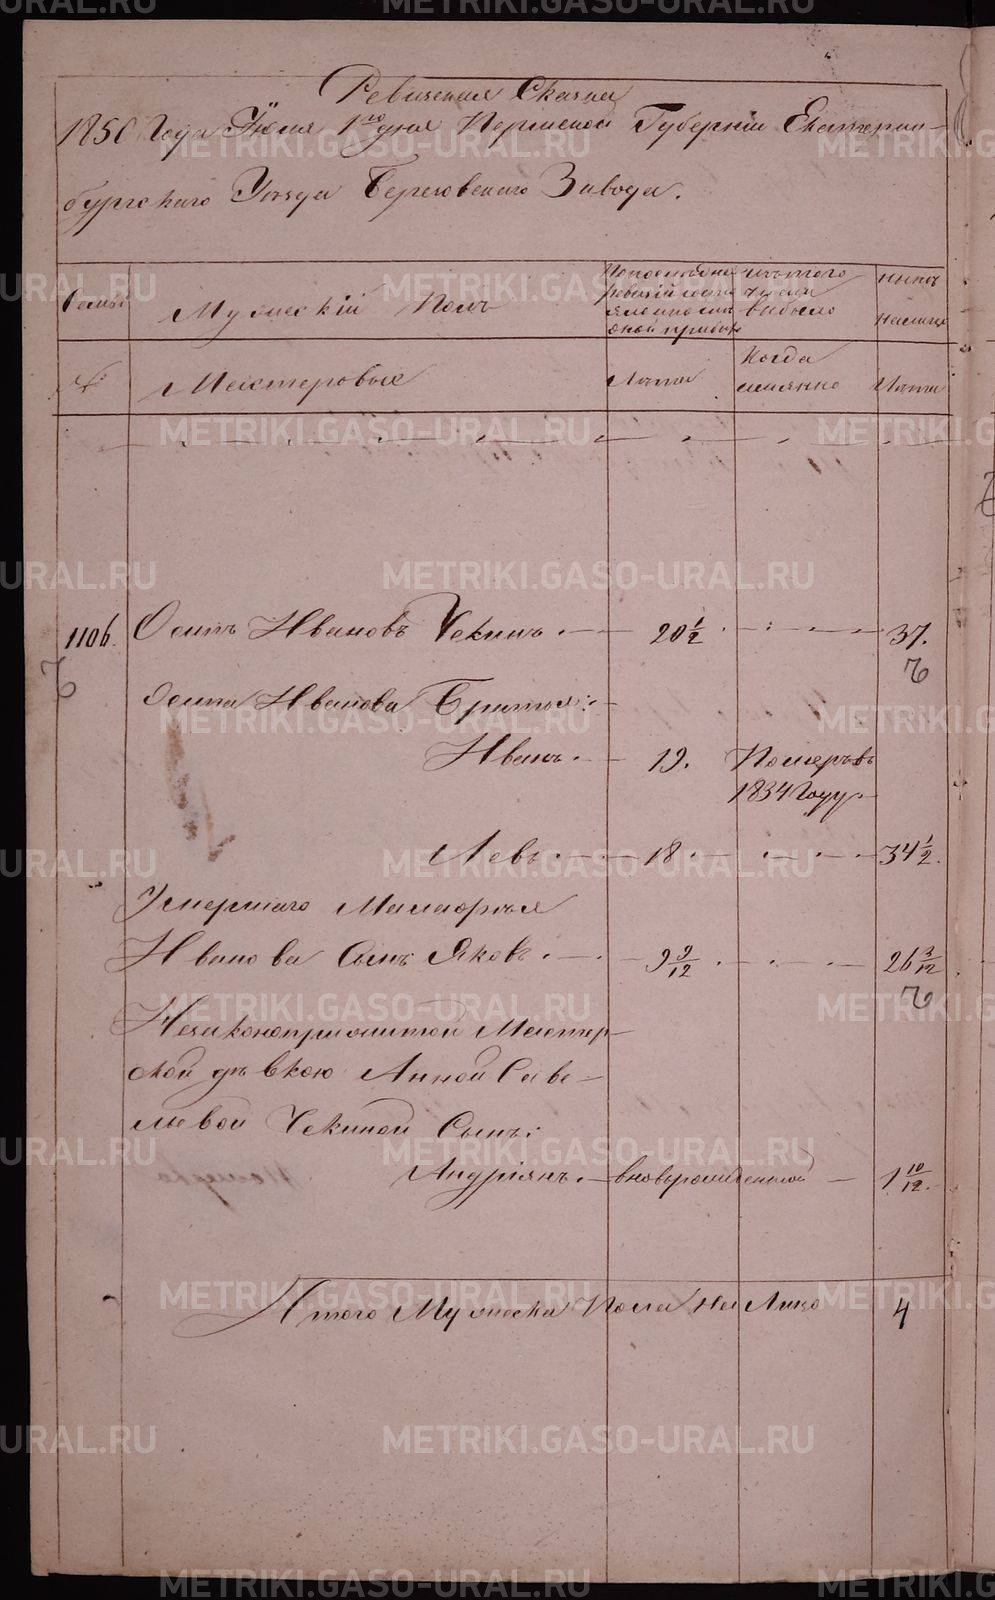 Ревизская Сказка
1850 Года Июля 1го дня Пермской Губернии Екатерин-
бургскаго Уѣзда Березовскаго Завода.
Семьи
Мужескій Полъ
По последней ревизіи состояло и после оной прибыло
изъ того числа выбыло
Нынѣ на лицо
№
Мастеровые
Лѣта
Когда имянно
Лѣта
1106. Осипъ Ивановъ Чекинъ. 20 1/2 37.
Осипа Иванова Братья:
Иванъ. 19. Померъ въ
1834 Году.
Левъ. 18 34 1/2.
Умершаго
Иванова Сынъ Яковъ. 9 9/12 26 3/12
Незаконоприжитой Мастер-
ской дѣвкою Анной Саве-
льевой Чекиной Сынъ:
Андріянъ. вноврожденный 1 10/12.
Итого Мужеска Пола на Лицо 4
METRIKI.GASO-URAL.RU